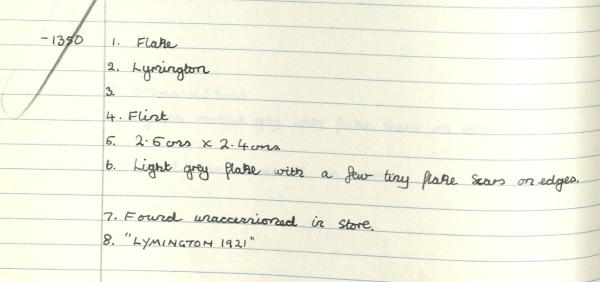 -1350 1. Flake
2. Lymington
3.
4. Flint
5. 2.5cms x 2.4cms
6. Light grey flake with a few tiny flake scars on edges.
7. Found unaccessioned in store.
8. "LYMINGTON 1921"